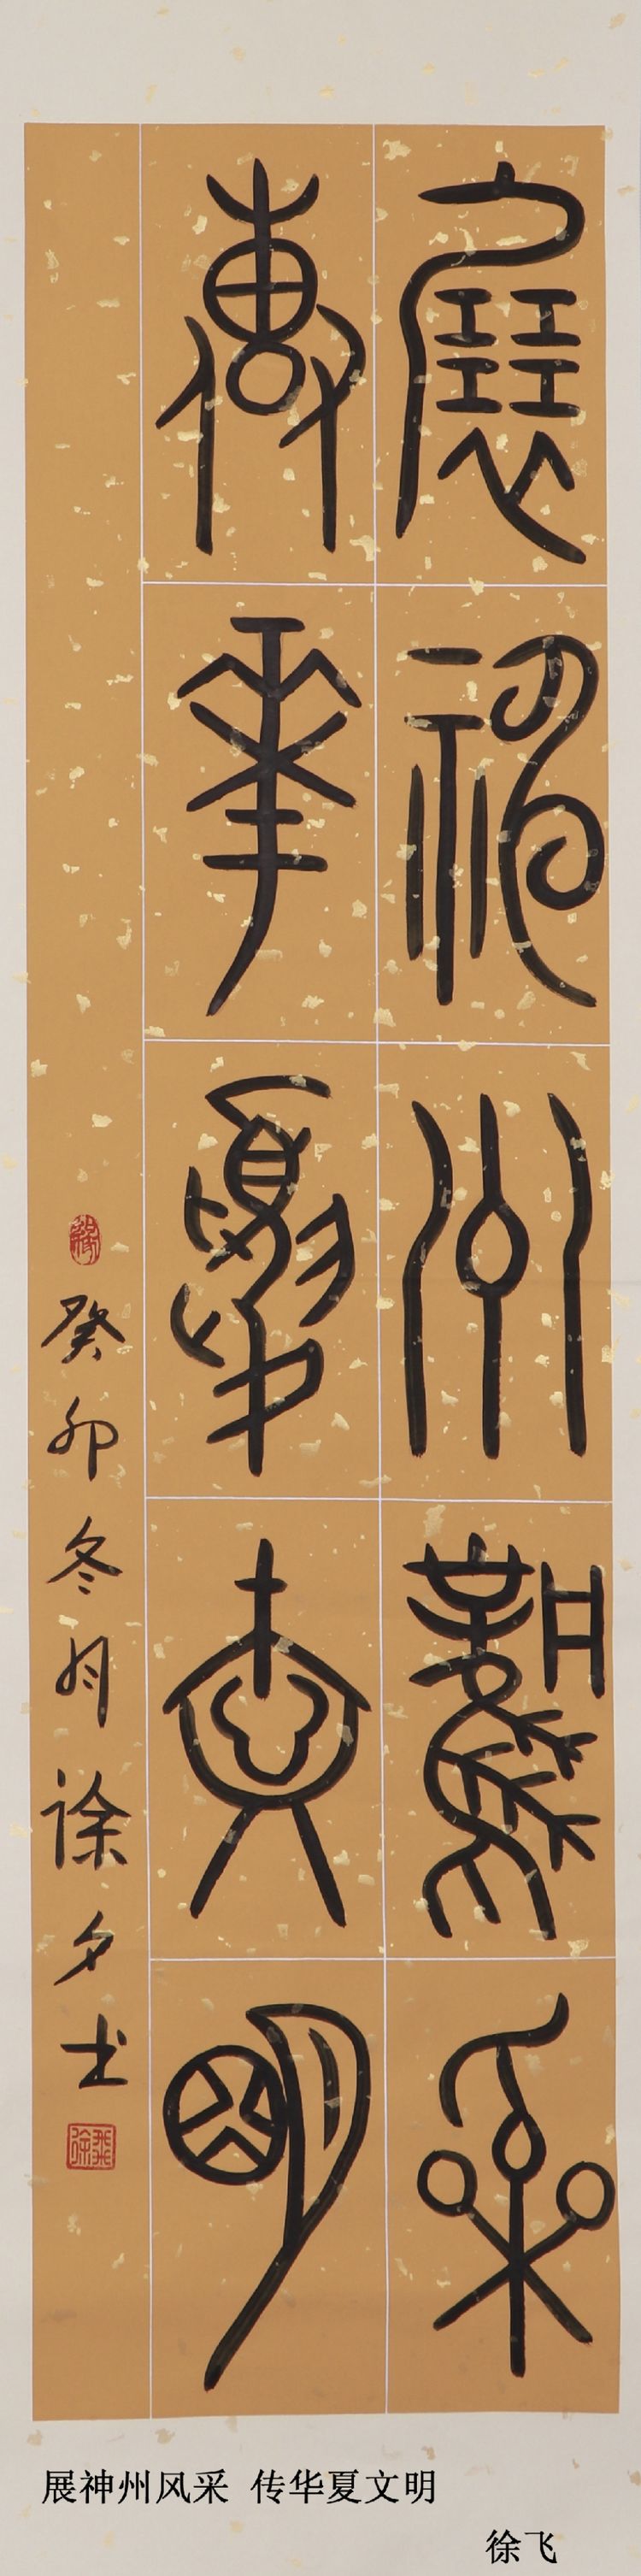 展神州风采
传华夏文明
癸卯冬月徐夕士
徐飞
展神州风采 传华夏文明
徐飞